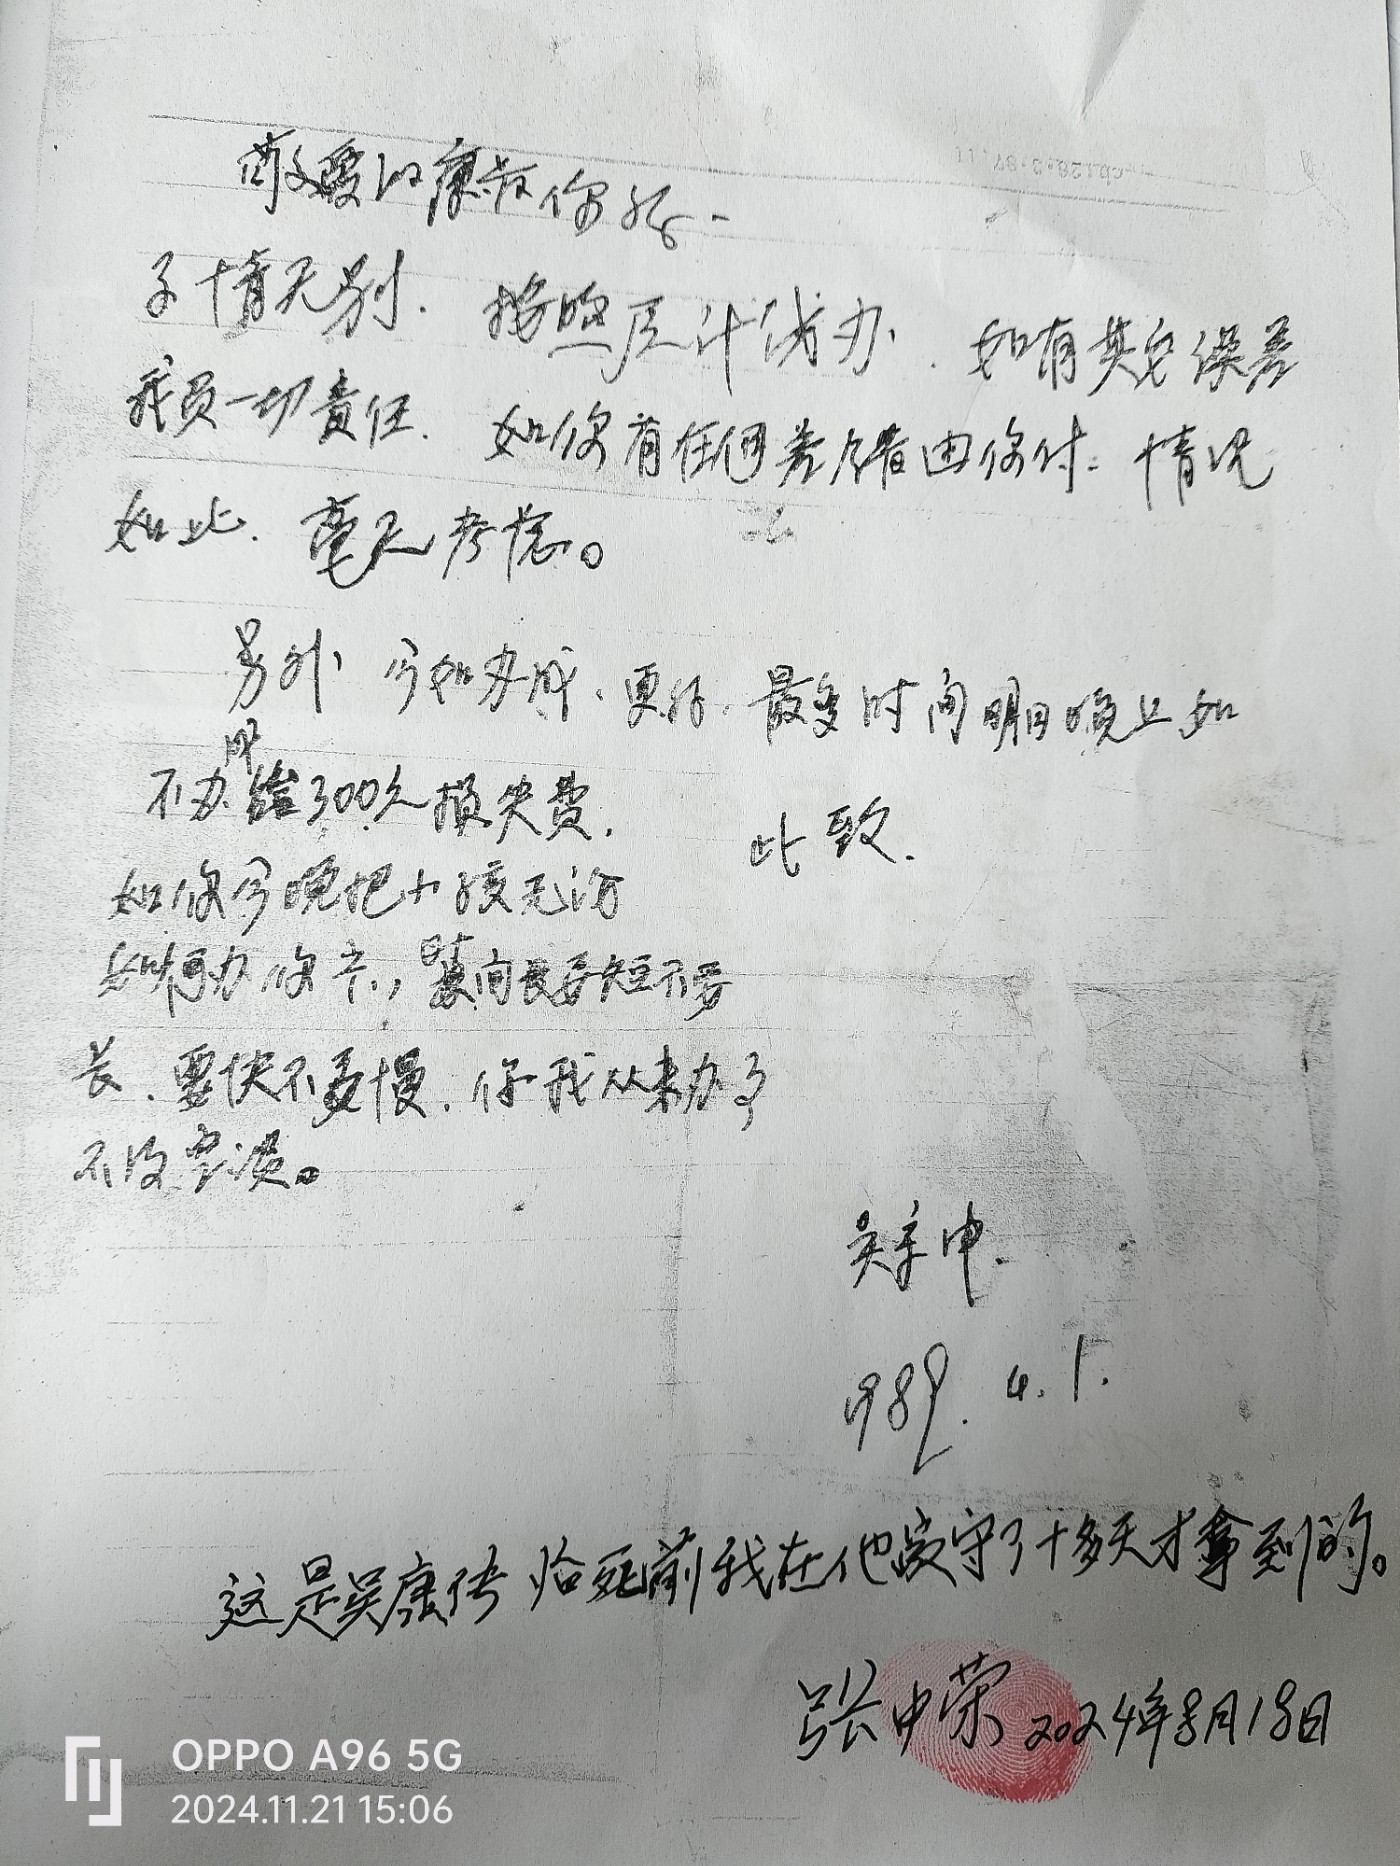 敬爱的康叔你好.
子情无别.按照原计划办.如有其它误差
我负一切责任.如你有任何差错由你付.情况
如此.毫无考虑。
另外.今如办成.更好.最多时间明日晚上如
不办.给300久损失费.
此致.
如你今晚把小孩无论
如何办你卡,时间要短不要
长.要快不要慢.你我从来办了
不没空浪。
吴 中.
1989.4.1.
这是吴康传临死前我在他家守了十多天才拿到的。
张中荣 2024年8月18日
OPPO A96 5G
2024.11.21 15:06